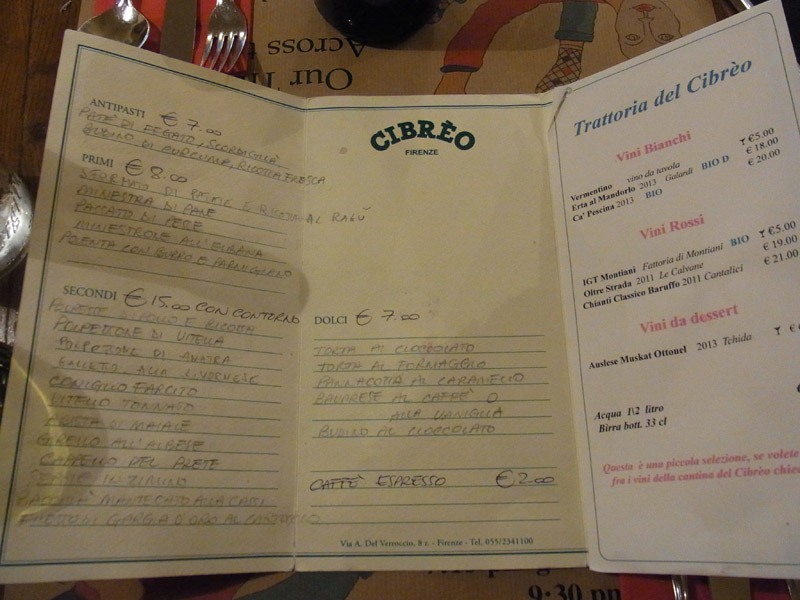 ANTIPASTI € 7.00
PATE' DI FEGATO, SCORDATELLA
BUDINO DI CURCUMA, RICOTTA FRESCA
PRIMI € 8.00
SFORMATO DI PATATE E RICOTTA AL RAGÙ
MINESTRA DI PANE
PASSATO DI PESCE
MINESTRONE ALL'ELBANA
POLENTA CON BURRO E PARMIGIANO
SECONDI € 15.00 CON CONTORNO
POLPETTE DI POLLO E RICOTTA
POLPETTONE DI VITELLA
POLPETTONE DI ANATRA
GALLETTO ALLA LIVORNESE
CONIGLIO FARCITO
VITELLO TONNATO
ARISTA DI MAIALE
GIRELLO ALL'ALBESE
CAPPELLO DEL PRETE
SEPPIE IN ZIMINO
BACCALA' MANTECATO ALLA
FILETTO DI D'ORO AL CARTOCCIO
CIBRÈO
FIRENZE
DOLCI € 7.00
TORTA AL CIOCCOLATO
TORTA AL FORMAGGIO
PANNACOTTA AL CARAMELLO
BAVARESE AL CAFFE' O
ALLA VANIGLIA
BUDINO AL CIOCCOLATO
CAFFE' ESPRESSO € 2.00
Via A. Del Verrocchio, 8 r. - Firenze - Tel. 055/2341100
Trattoria del Cibrèo
Vini Bianchi
Vermentino vino da tavola €5.00
Erta al Mandorlo 2013 Galardi BIO D € 18.00
Ca' Pescina 2013 BIO € 20.00
Vini Rossi
IGT Montiani Fattoria di Montiani BIO €5.00
Oltre Strada 2011 Le Calvane € 19.00
Chianti Classico Baruffo 2011 Cantalici € 21.00
Vini da dessert
Auslese Muskat Ottonel 2013 Tchida €
Acqua 1\2 litro
Birra bott. 33 cl
Questa è una piccola selezione, se volete
fra i vini della cantina del Cibrèo chie
Across
Our
9:30 pm